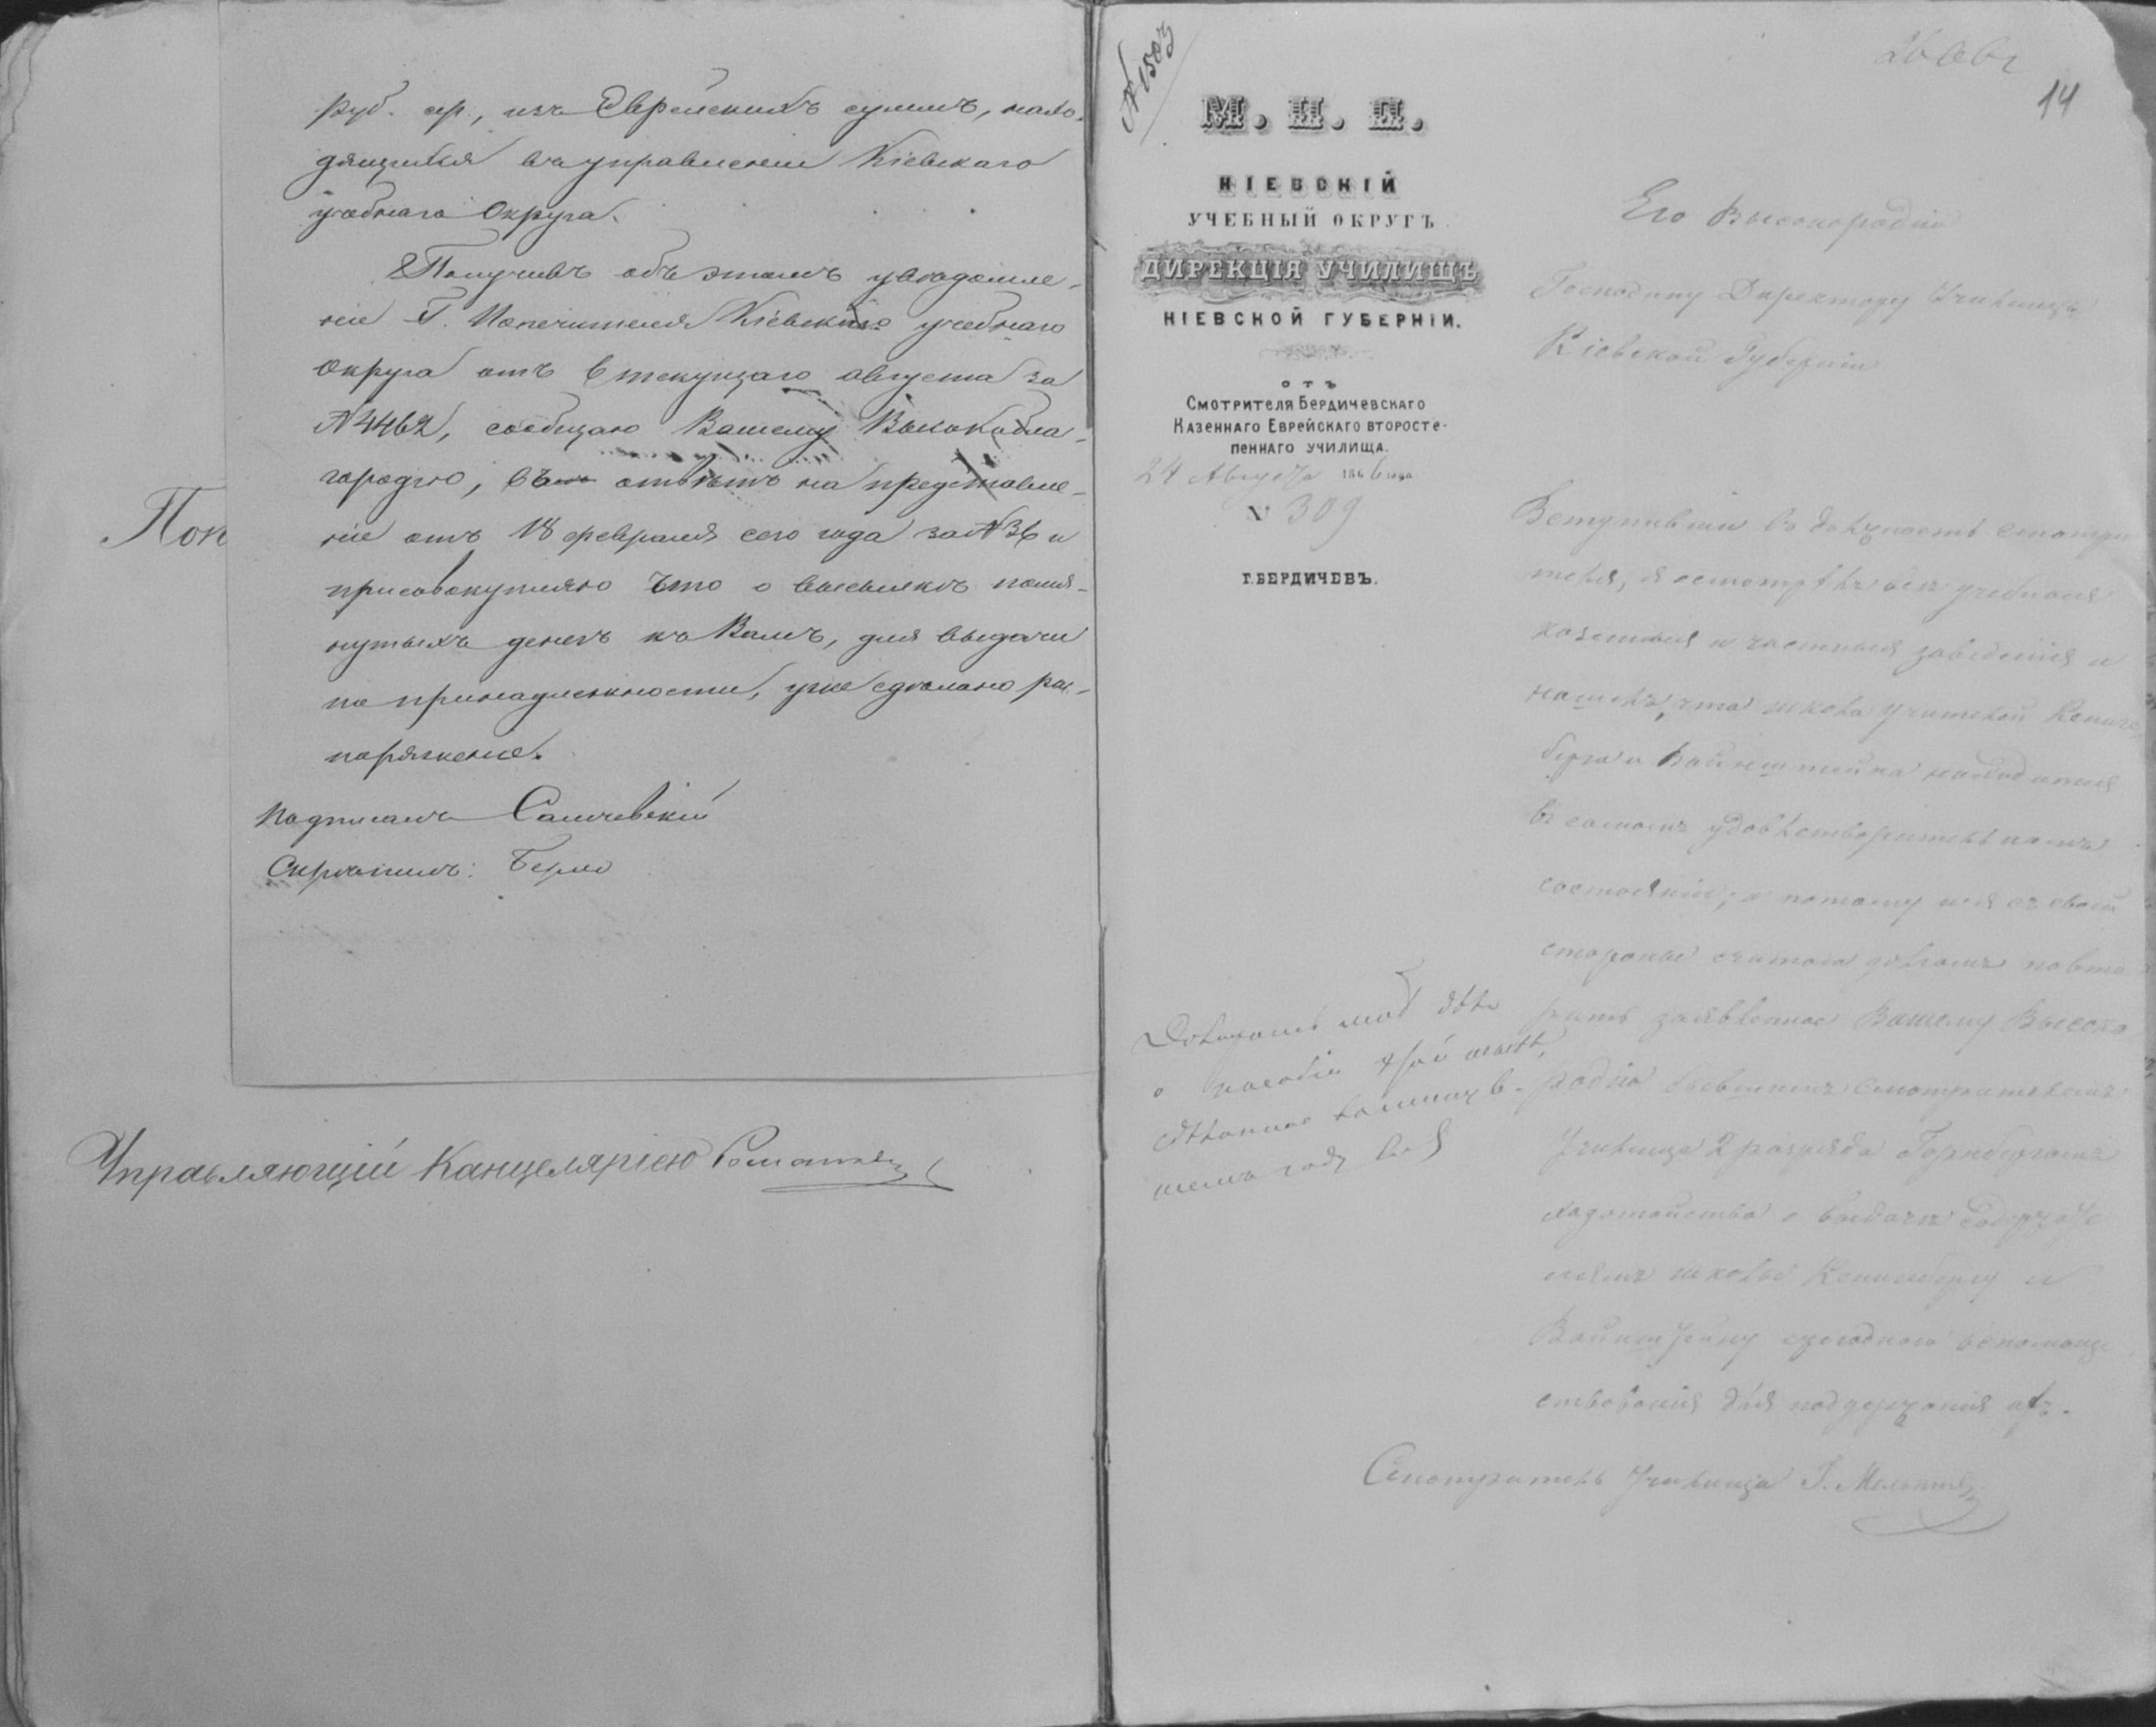 руб. ср., изъ Еврейскихъ суммъ, нахо-
дящихся въ управленіи Кіевскаго
учебнаго Округа.
Получивъ объ этомъ уведомле-
ніе Г. Попечителя Кіевскаго учебнаго
Округа отъ 6 текущаго августа за
№ 4462, сообщаю Вашему Высокобла-
городію, въ ответъ на представле-
ніе отъ 18 февраля сего года за № 36 и
присовокупляю что о высылкѣ помя-
нутыхъ денегъ къ Вамъ, для выдачи
по принадлежности, уже сделано рас-
поряженіе.
Подписалъ
Скрѣпилъ:
Поп
Управляющій Канцеляріею Романов
№ 1503
14
М. Н. П.
КІЕВСКІЙ
УЧЕБНЫЙ ОКРУГЪ.
ДИРЕКЦІЯ УЧИЛИЩЪ
КІЕВСКОЙ ГУБЕРНІИ.
ОТЪ
Смотрителя Бердичевскаго
Казеннаго Еврейскаго второсте-
пеннаго училища.
24 Августа 1866 года
№ 309
Г. БЕРДИЧЕВЪ.
Его Высокородію
Господину Директору Училищъ
Кіевской Губерніи
Вступивши въ должность смотри
теля, я осмотрѣлъ всѣ учебныя
казенныя и частныя заведенія и
нашелъ, что школа учителей Кениго
берга и Вайнштейна находится
въ самомъ удовлетворительномъ
состояніи; а потому и я съ своей
стороны считаю долгомъ повто
рить заявленное Вашему Высоко
родію бывшимъ Смотрителемъ
Училища 2 разряда Горнбергомъ
ходатайство о выдачѣ Содержате
лямъ школы Кенигсбергу и
Вайнштейну ежегоднаго вспомоще
ствованія для поддержанія ихъ.
о пособіи
Смотритель Училища